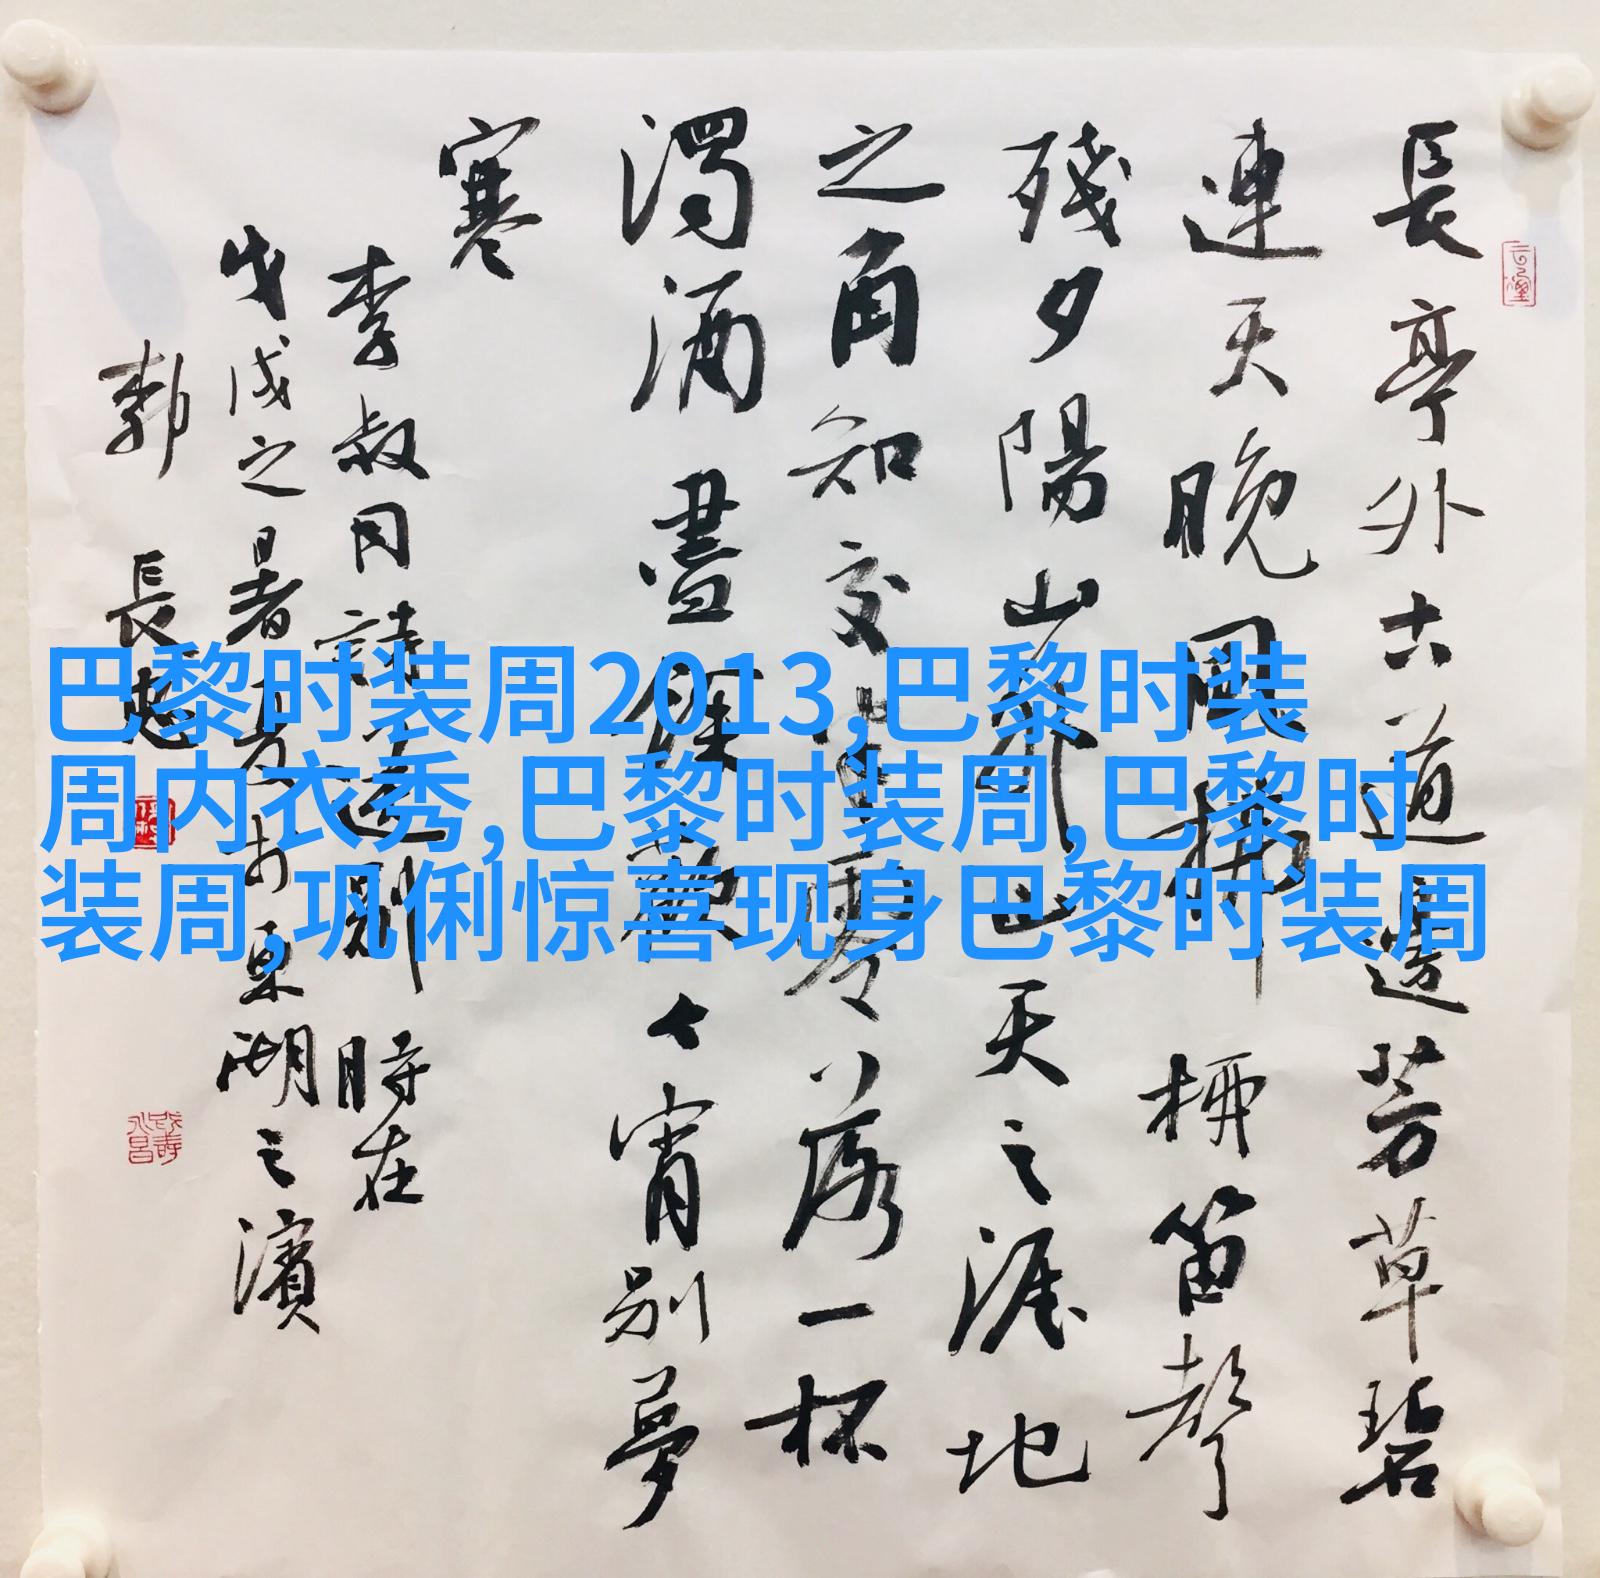 長亭外古道邊芳草碧
連天晚風拂柳笛聲
殘夕陽山外山天之涯地
之角知交半零落一杯
濁酒盡餘歡今宵別夢
寒
李叔同詩送別 時在
戊戌之暑夏於東湖之濱
郭長
巴黎时装周2013,巴黎时装
周内衣秀,巴黎时装周,巴黎时
装周,巩俐惊喜现身巴黎时装周